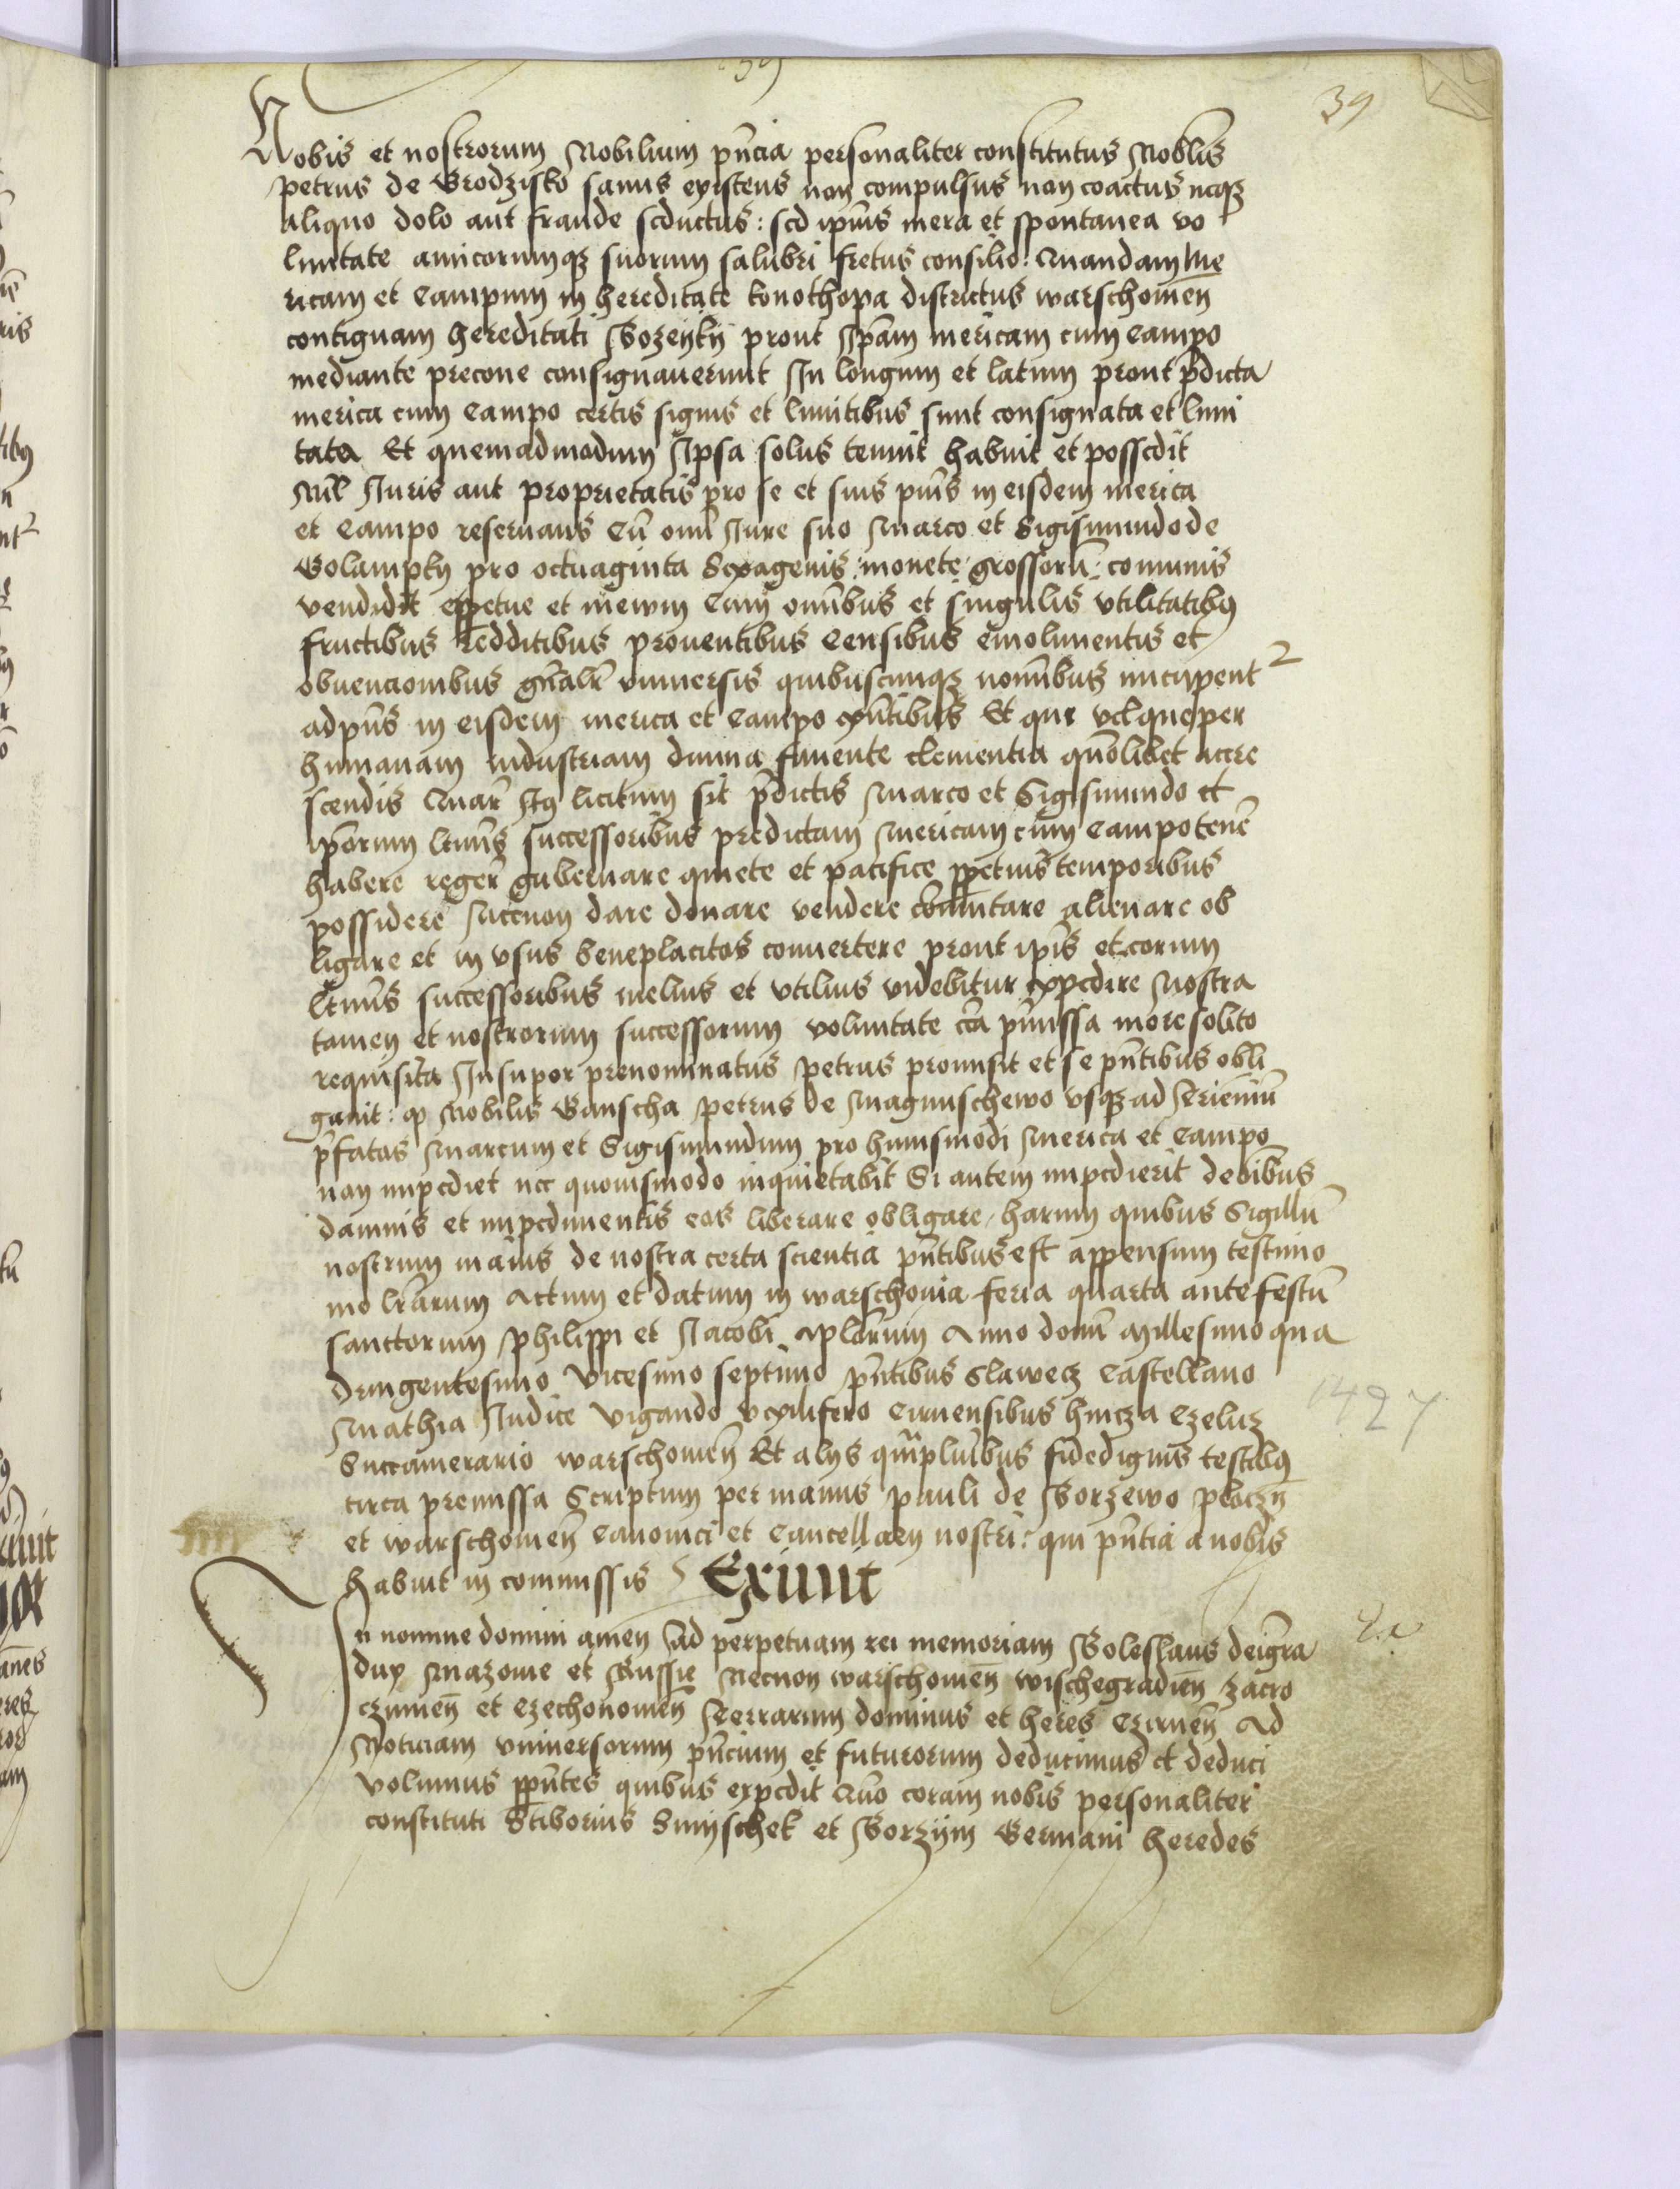 39
Nobis et nostrorum Nobilium pn̄cia personaliter constitutus Nobl̄is
petrus de Grodzisko sanus existens non compulsus non coactus neqȝ
aliquo dolo aut fraude seductus : sed ipīus mera et spontanea vo
luntate amicorumqȝ suorum salubri fretus consilio Quandam Me
ricam et Campum in hereditate konothopa districtus warschouien̄
contiguam hereditati Bozeyky prout Ip̄am mericam cum Campo
mediante precone consignauerunt In longum et latum prout p̄dicta
merica cum Campo certis signis et limitibus sunt consignata et limi
tata Et quemadmodum Ipsa solus tenuit habuit et possedit
Nil Iuris aut proprietatis pro se et suis in eisdem merica
et Campo reseruans Cū om̄i Iure suo Marco et Sigismundo de
Golampky pro octuaginta Sexagenis : monete grossorū : communis
vendidit et in ewm Cum omībus et singulis vtilitatibꝯ
fructibus redditibus prouentibus Censibus emolimentis et
obuencionibus gn̄alr̄ vniuersis quibuscunqȝ nomībus nuncupent2
ad pn̄s in eisdem merica et Campo exn̄tibus Et que vel que per
humanam industriam diuina fauente clementia quōlibet accre
scendis Quar̄ Itꝯ licitum sit p̄dictis Marco et Sigismundo et
ip̄orum ltīmis successoribus predictam Mericam cum Campo tenē
habere reger̄ gubernare quiete et pacifice ppetuis temporibus
possidere Necnon dare donare vendere cōmutare alienare ob
ligare et in vsus beneplacitos conuertere prout ip̄is et eorum
ltīmis successoribus melius et vtilius videbitur expedire Nostra
tamen et nostrorum successorum voluntate cc̄a p̄missa more solito
requisita Insuper prenominatus petrus promisit et se pn̄tibus obli
gauit : ꝙ Nobilis Ganscha petrus de Magnuschewo vsqȝ ad Trieniū
p̄fatos Marcum et Sigismundum pro huiusmodi Merica et Campo
non impediet nec quouismodo inquietabit Si autem impedierit de oībus
damnis et impedimentis eos liberare obligare / harum quibus Sigillū
nostrum maius de nostra certa scientia pn̄tibus est appensum testimo
nio lr̄arum Actum et datum in warschouia feria quarta ante festū
sanctorum Philippi et Iacobi Apl̄orum Anno domī Millesimo qua
dringentesimo Vicesimo septimo pn̄tibus Slawecz Castellano
Mathia Iudice Vigando vexilifero Cirnensibus hincza Czeluz
Succamerario warschouien̄ Et alys qm̄pluribus fidedignis testibꝯ
circa premissa Scriptum per manus Pauli de Borzewo ploczn̄
et warschouien̄ Canonici et Cancellarij nostri : qui pn̄tia a nobis
habuit in commissis Exiuit
1427
In nomine domini amen Ad perpetuam rei memoriam Boleslaus dei gra
dux Mazouie et Russie Necnon warschouien̄ wischegradien̄ zacro
czimien̄ et czechonouien̄ Terrarum dominus et heres Czirnen̄ Ad
Noticiam vniuersorum pn̄cium et futurorum deducimus et deduci
volumus ppn̄tes quibus expedit Quō coram nobis personaliter
constituti Stiborius Smyschek et Borzym Germani heredes